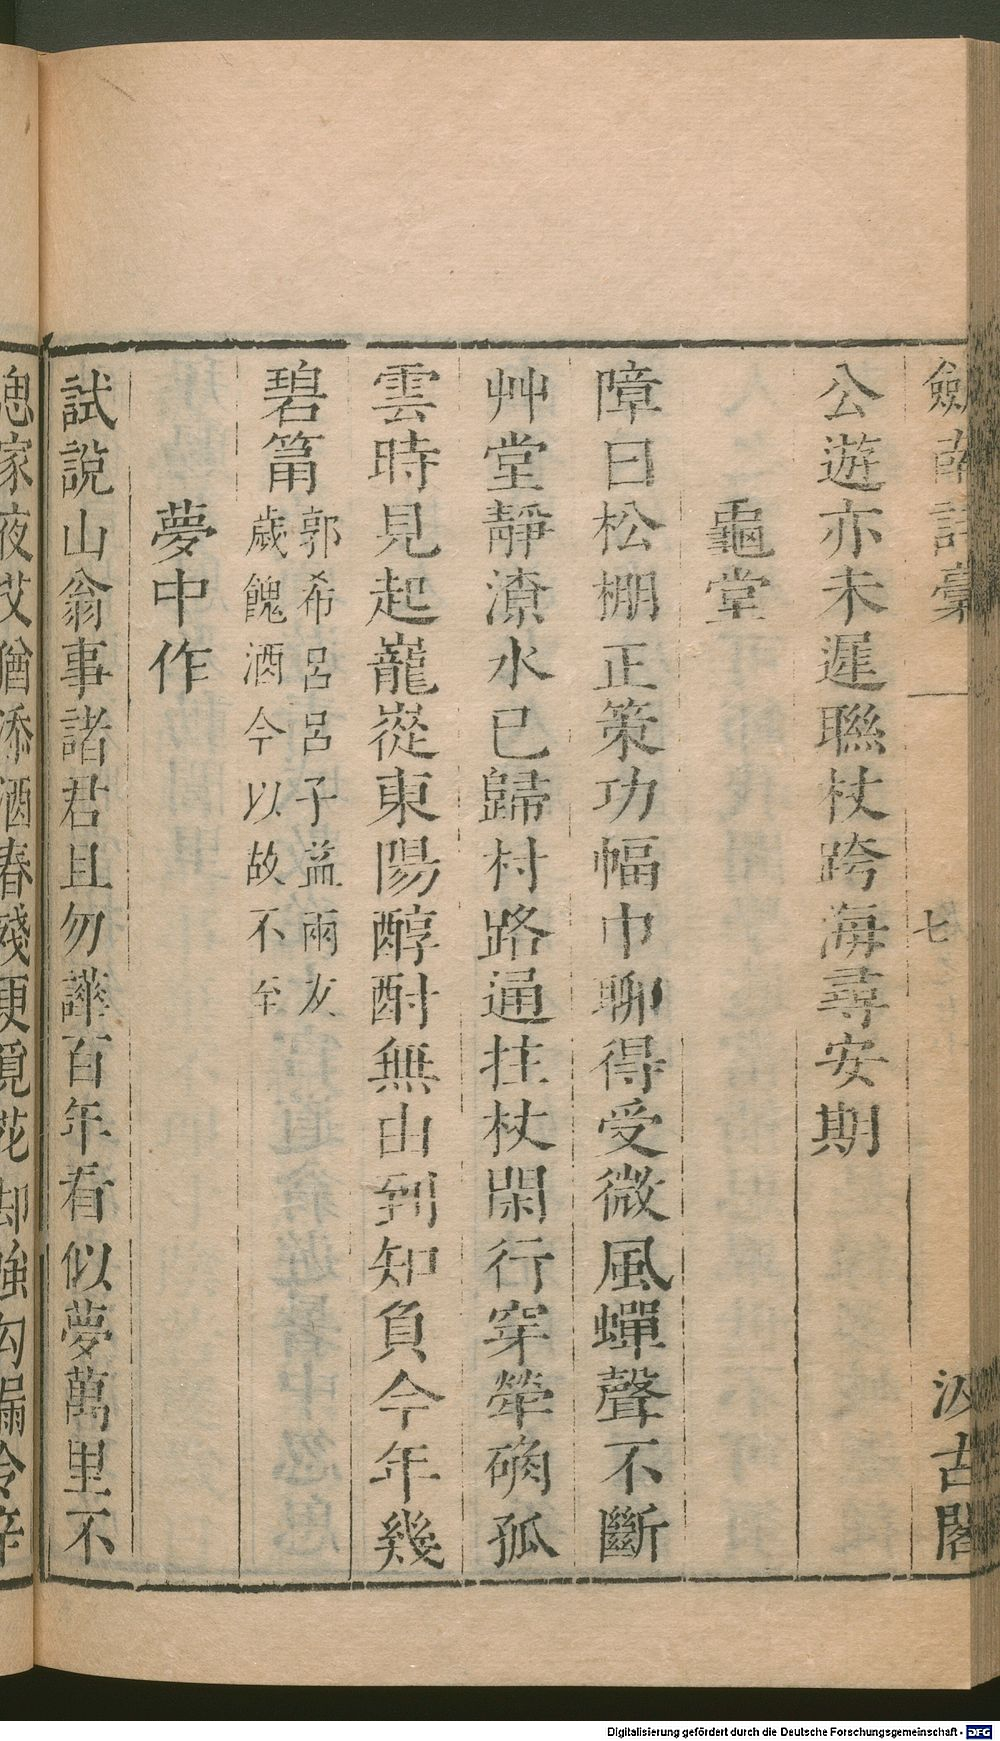 劍南詩藁 七 汲古閣
公遊亦未遲聯杖跨海尋安期
龜堂
障日松棚正策功幅巾聊得受微風蟬聲不斷
艸堂靜潦水已歸村路通拄杖閑行穿犖确孤
雲時見起巃嵷東陽醇酎無由到知負今年幾
碧筩
郭希呂呂子益兩友
歲餽酒今以故不至
夢中作
試說山翁事諸君且勿譁百年看似夢萬里不
家夜艾猶添酒春殘更覓花却強勾漏令辛
Digitalisierung gefördert durch die Deutsche Forschungsgemeinschaft - DFG